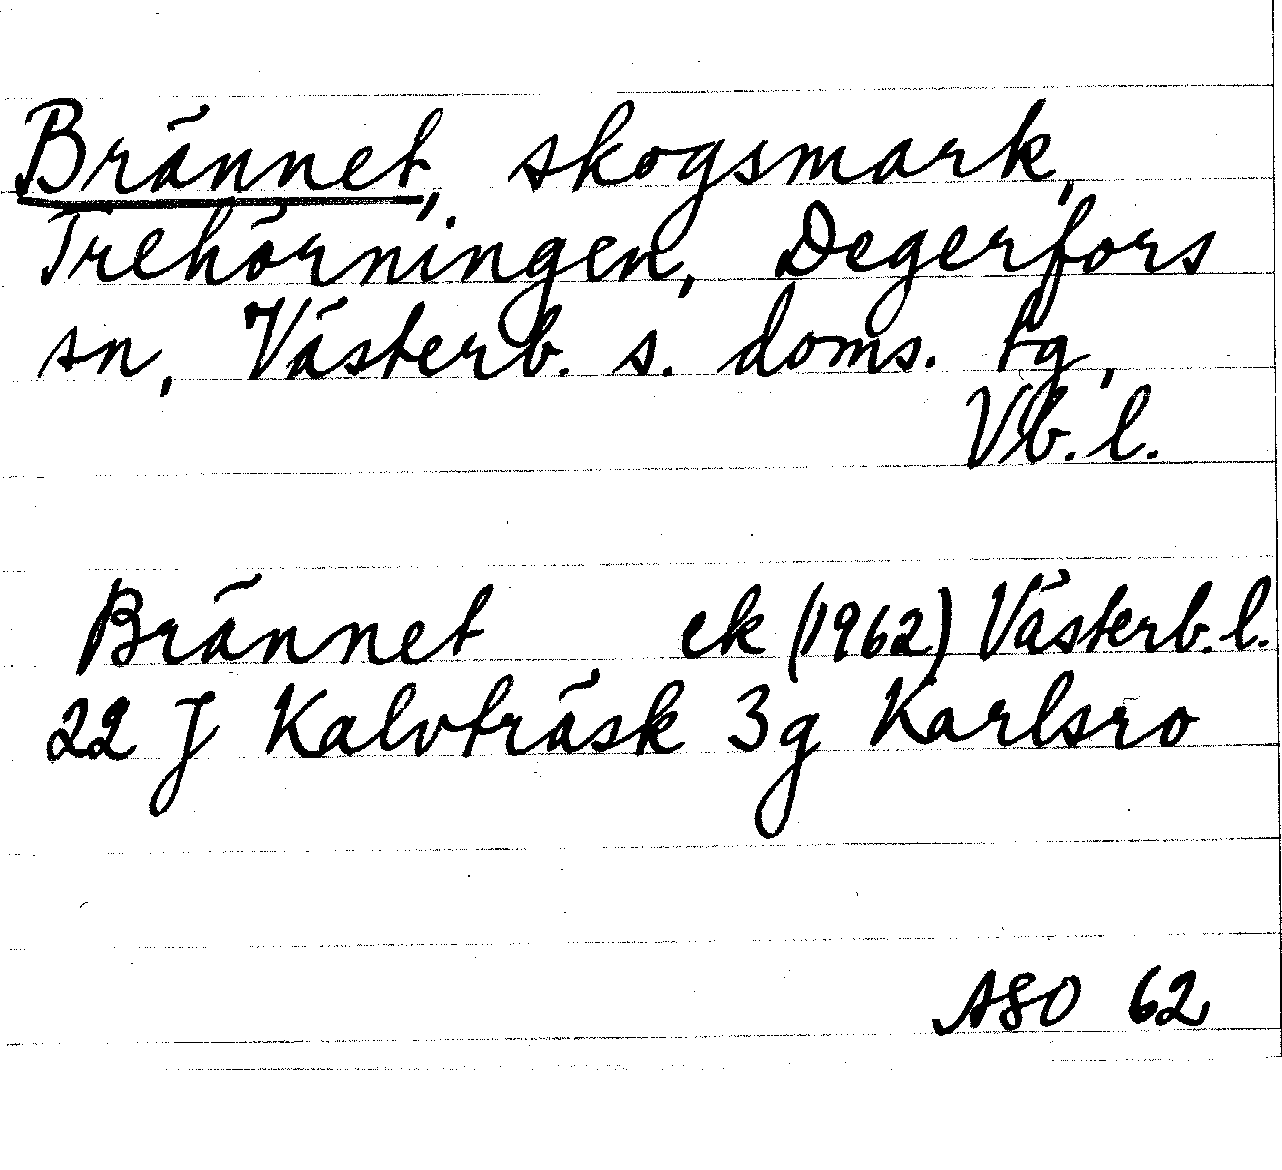 Brännet, skogsmark,
Trehörningen, Degerfors
sn, Västerb. s. doms. tg,
Vb. l.
Brännet ek (1962) Västerb. l.
22 J Kalvträsk 3g Karlsro
ASO 62